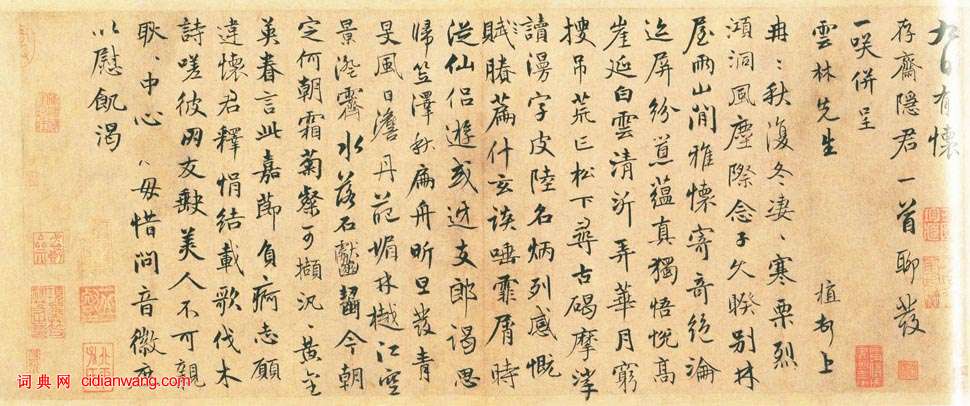 九日有懷
存齋隱君一首聊發
一咲併呈
雲林先生 植頓上
冉〻秋復冬凄〻寒栗烈
澒洞風塵際念子久睽別林
屋兩山閒雅懷寄奇絕論
迄屏紛蕴真獨悟悦高
崖延白雲清沂弄華月窮
搜吊荒亡松下尋古碣摩挲
讀漫字皮陸名炳列感慨
賦勝篇什玄談唾霏屑時
從仙侣遊或迓支郎謁思
歸笠澤秋扁舟昕旦發青
旻風日澹丹葩媚林樾江空
景澄霽水落石齾齾今朝
定何朝霜菊粲可擷汎〻黄金
英眷言此嘉莭負痾志願
違懷君釋悁結載歌伐木
詩嗟彼朋友缺美人不可親
耿〻中心〻毋惜問音徽庶
以慰飢渴
词典网 cidianwang.com